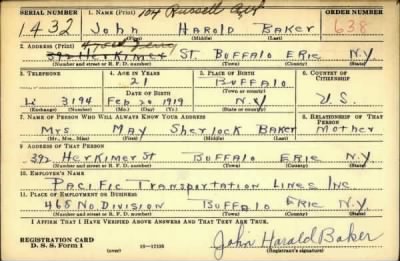 SERIAL NUMBER 1. NAME (Print) 104 Russell ORDER NUMBER
1432 John Harold Baker 638
(First) (Middle) (Last)
2. ADDRESS (Print)
392 Herkimer St. Buffalo Erie N.Y.
(Number and street or R. F. D. number) (Town) (County) (State)
3. TELEPHONE 4. AGE IN YEARS 5. PLACE OF BIRTH 6. COUNTRY OF CITIZENSHIP
21 Buffalo
DATE OF BIRTH (Town or county)
3194 Feb 20 1919 N.Y. U.S.
(Exchange) (Number) (Mo.) (Day) (Yr.) (State or country)
7. NAME OF PERSON WHO WILL ALWAYS KNOW YOUR ADDRESS 8. RELATIONSHIP OF THAT PERSON
Mrs May Sherlock Baker Mother
(Mr., Mrs., Miss) (First) (Middle) (Last)
9. ADDRESS OF THAT PERSON
392 Herkimer St Buffalo Erie N.Y.
(Number and street or R. F. D. number) (Town) (County) (State)
10. EMPLOYER'S NAME
Pacific Transportation Lines Inc
11. PLACE OF EMPLOYMENT OR BUSINESS
468 No. Division Buffalo Erie N.Y.
(Number and street or R. F. D. number) (Town) (County) (State)
I AFFIRM THAT I HAVE VERIFIED ABOVE ANSWERS AND THAT THEY ARE TRUE.
REGISTRATION CARD John Harald Baker
D. S. S. Form 1 (over) 16—17105 (Registrant's signature)